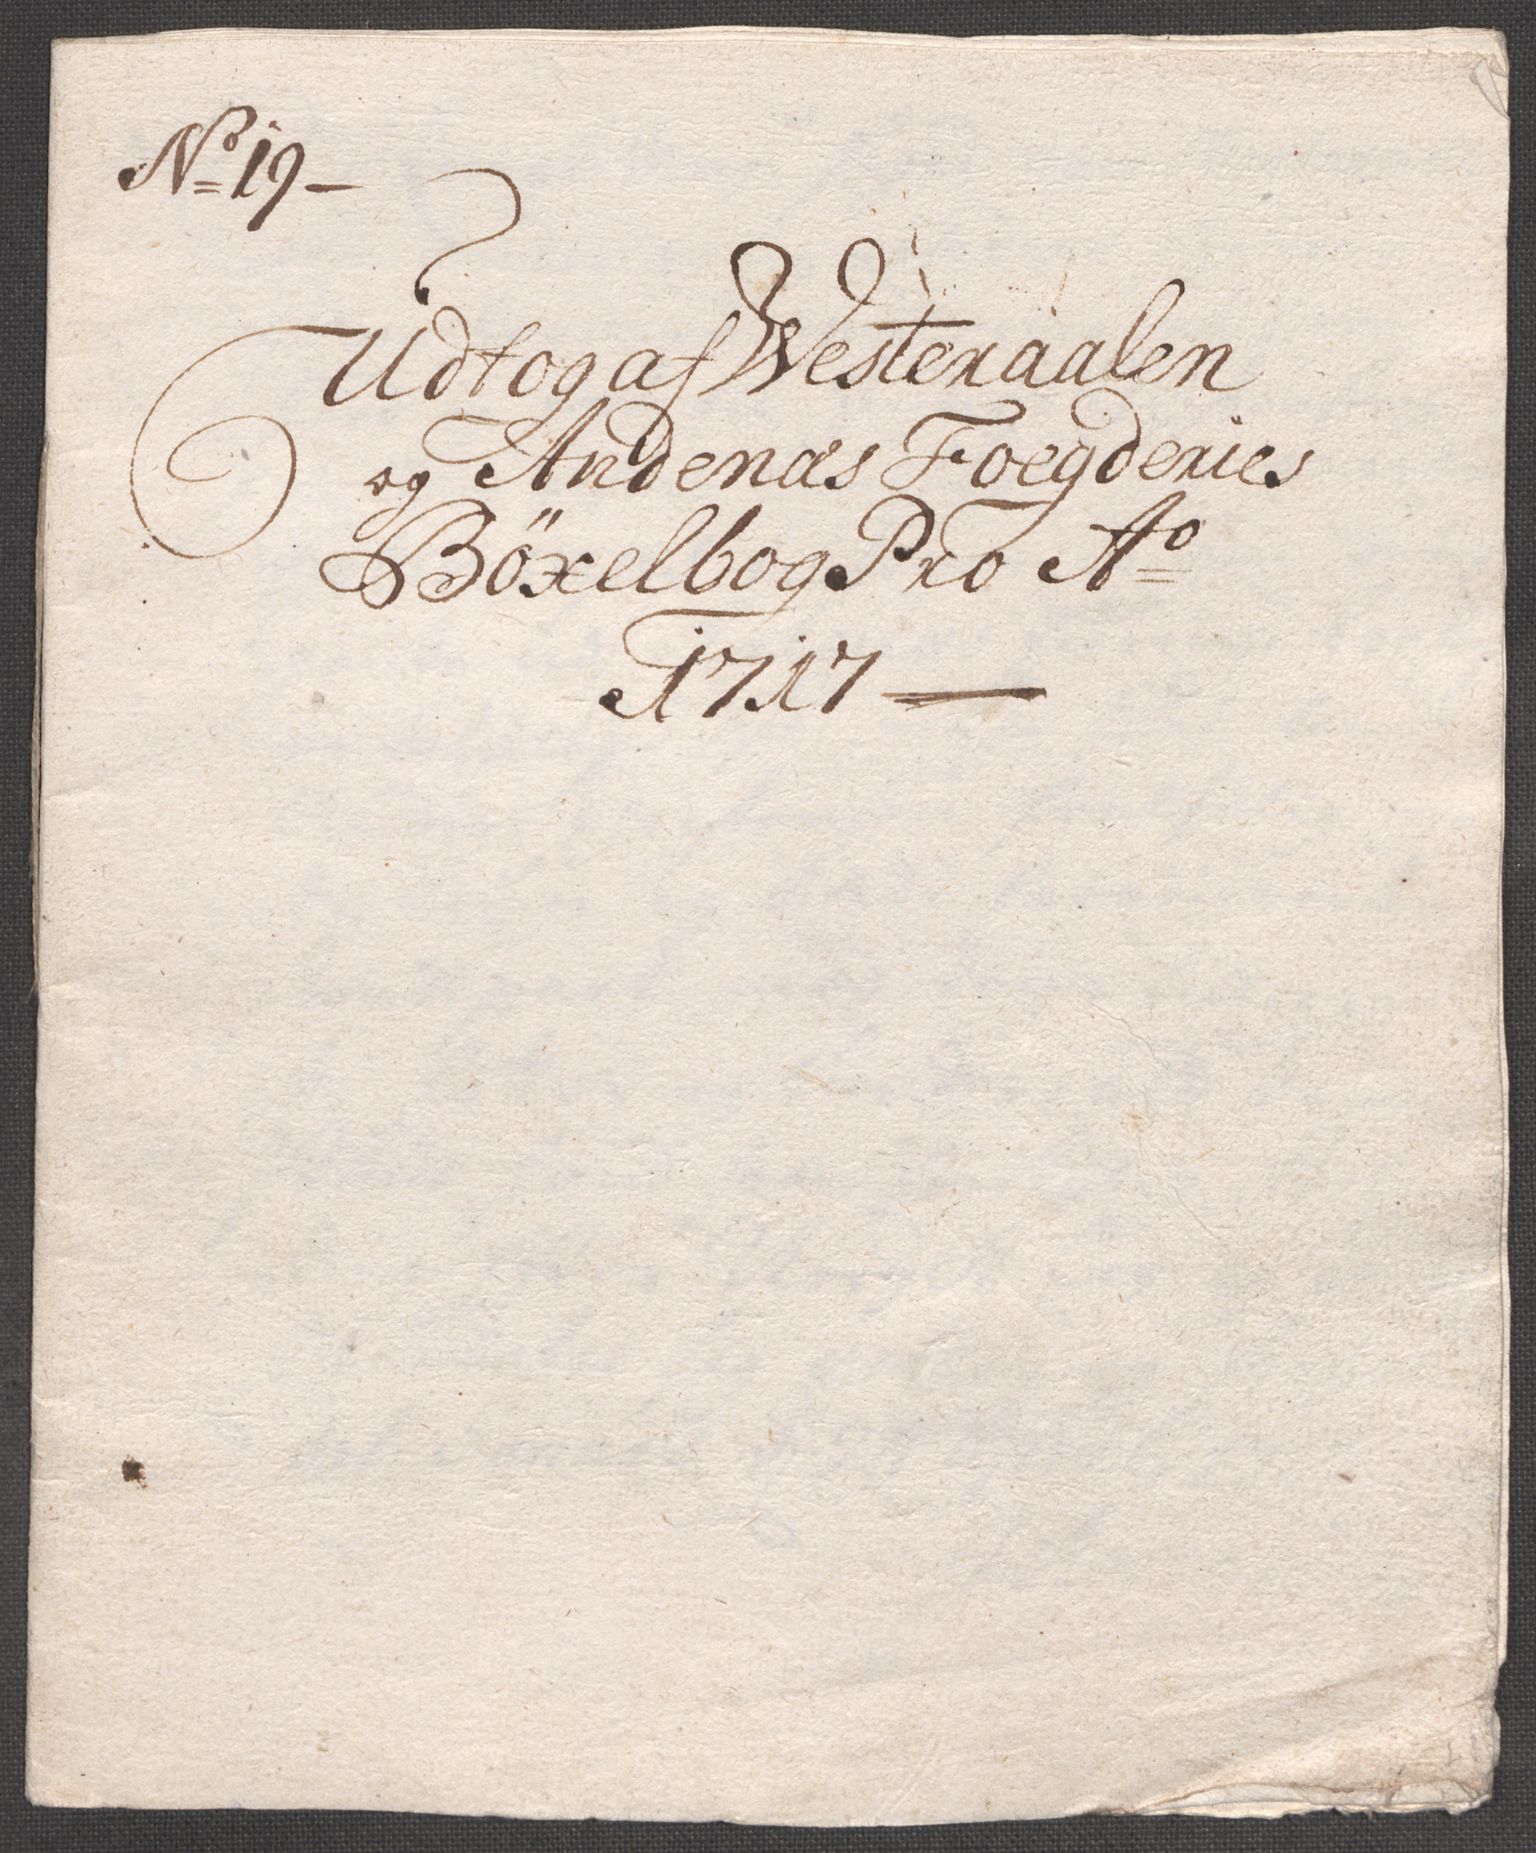 No 19 —
Udtog af Westeraalen
og Andenæs Foegderies
Böxelbog Pro Ao
1717 —